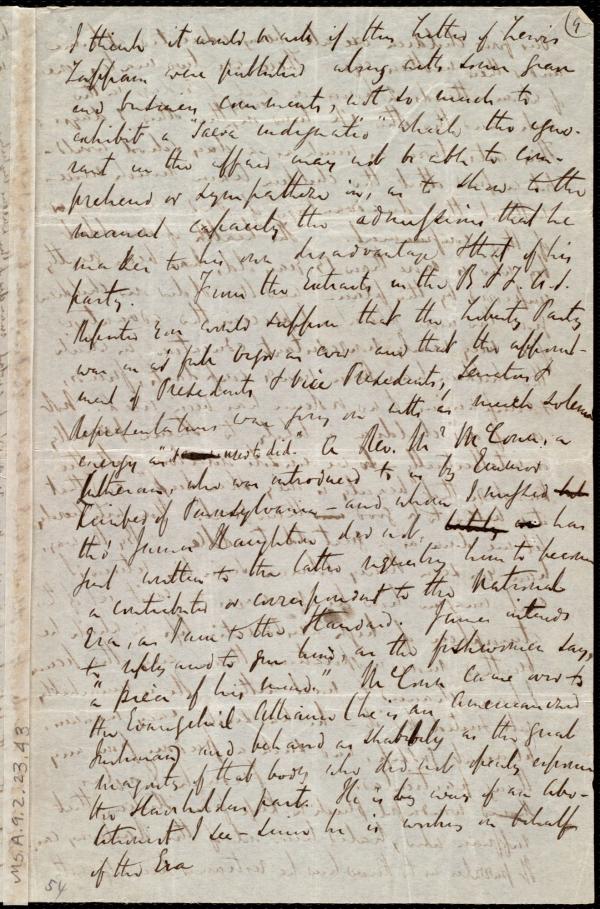 9
I think it would be well if this letter of Lewis
Tappan were published along with some grave
and business comments, not so much to
exhibit a "saeva indignatio" which the igno-
rant in the affair may not be able to com-
prehend or sympathize in, as to show to the
meanest capacity the admissions that he
makes to his own disadvantage & that of his
party. From the Extracts in the B & F. A. S.
Reporter you would suppose that the Liberty Party
was in as full vigor as ever and that the appoint-
ment of Presidents & Vice Presidents, Senators &
Representatives was going on with as much solemn
energy as "used to did." A Rev. Mr McCona, a
Lutheran, who was introduced to us by Edward
Kimber of Pennsylvania – and whom I
tho' James Haughton did not, has
just written to the latter requesting him to become
a contributor or correspondent to the National
Era, as I am to the Standard. James intends
to reply and to give him, as the fishwomen say,
"a piece of his mind." McCona came over to
the Evangelical Alliance (he is an Americanized
Irishman) and behaved as shabbily as the great
majority of that body who did not openly espouse
the Slaveholders part. He is by way of an abo-
litionist I see – since he is working on behalf
of the Era
Ms.A.9.2.23.43
54